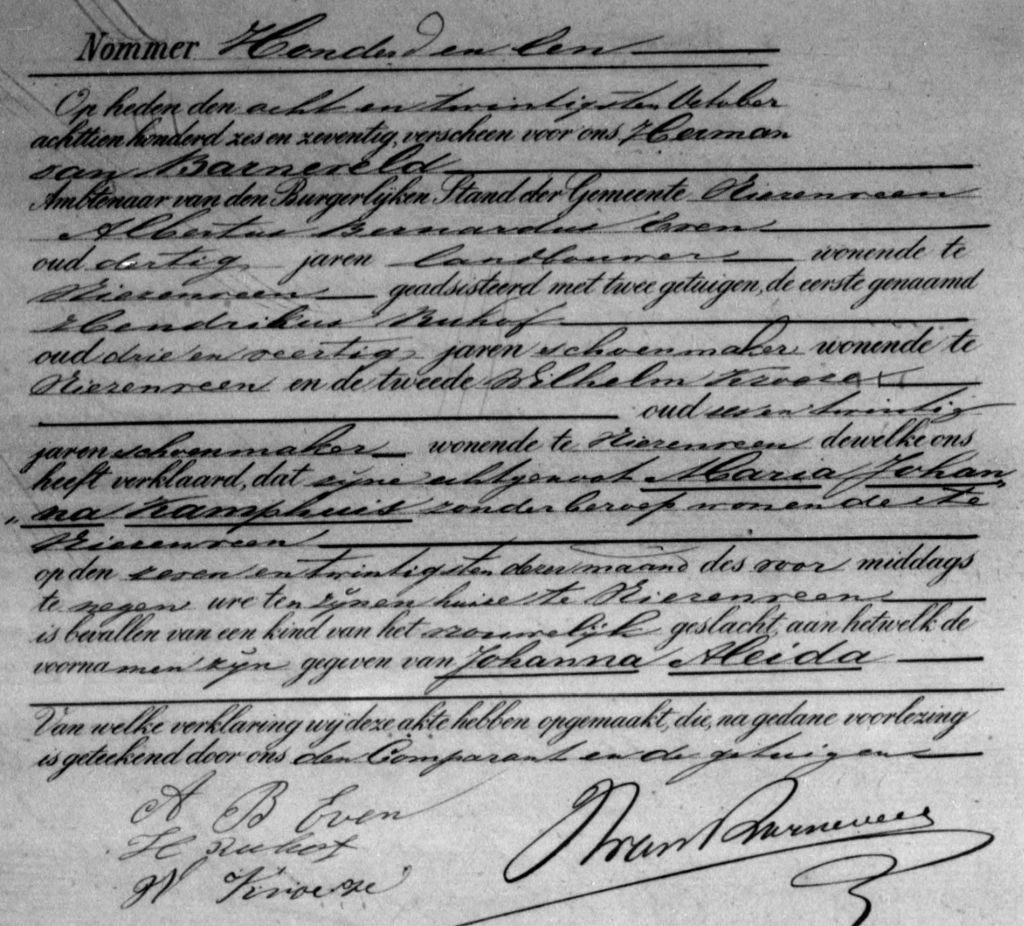 Nommer Honderd en Een
Op heden den acht en twintigsten October
achttien honderd zes en zeventig, verscheen voor ons, Herman
van Barneveld
Ambtenaar van den Burgerlijken Stand der Gemeente Nieuwveen
Albertus Bernardus Even
oud dertig jaren landbouwer wonende te
Nieuwveen geadsisteerd met twee getuigen, de eerste genaamd
Hendrikus
oud drie en veertig jaren schoenmaker wonende te
Nieuwveen en de tweede Wilhelm Kroeze
oud zes en twintig
jaren schoenmaker wonende te Nieuwveen dewelke ons
heeft verklaard, dat zijne echtgenoot Maria Johan„
„na Kamphuis zonder beroep wonende te
Nieuwveen
op den zeven en twintigsten dezer maand des voor middags
te negen ure ten zijnen huize te Nieuwveen
is bevallen van een kind van het vrouwelijk geslacht, aan hetwelk de
voornamen zijn gegeven van Johanna Aleida
Van welke verklaring wij deze akte hebben opgemaakt, die, na gedane voorlezing
is geteekend door ons den Comparant en de getuigen
A B Even
H
W Kroeze
HvanBarneveld